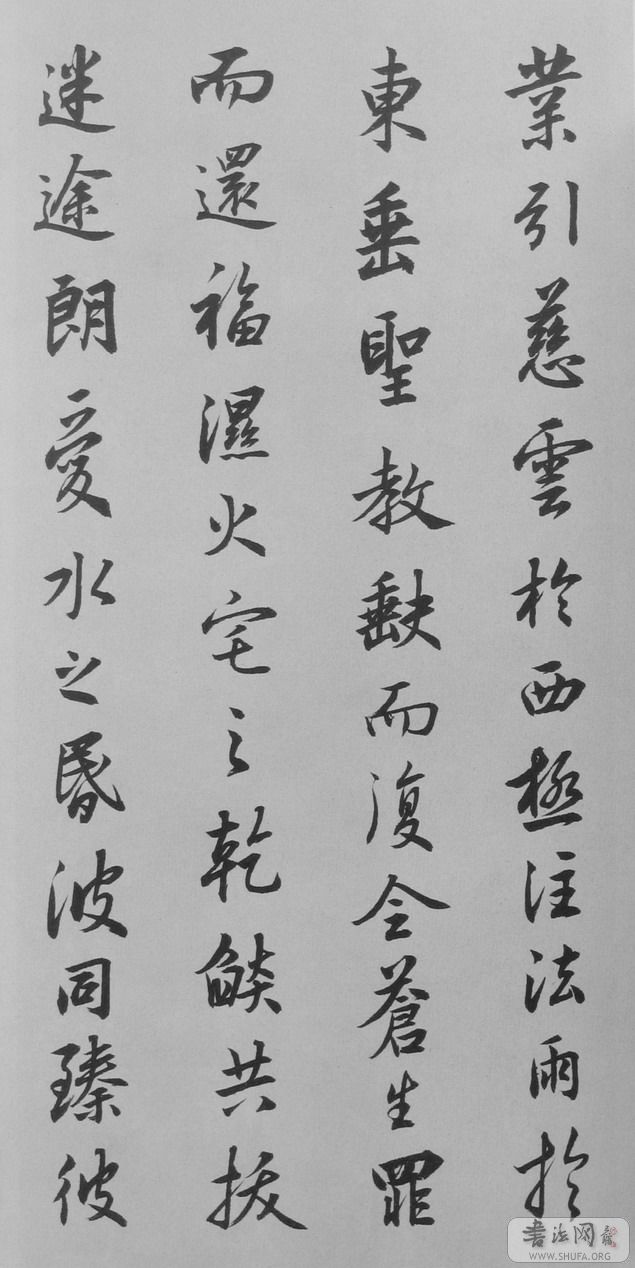 業引慈雲於西極注法雨於
東垂聖教缺而復全蒼生罪
而還福濕火宅之乾燄共拔
迷途朗愛水之昬波同臻彼
書法网
WWW.SHUFA.ORG